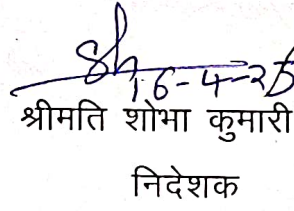 16-4-25
श्रीमति शोभा कुमारी
निदेशक